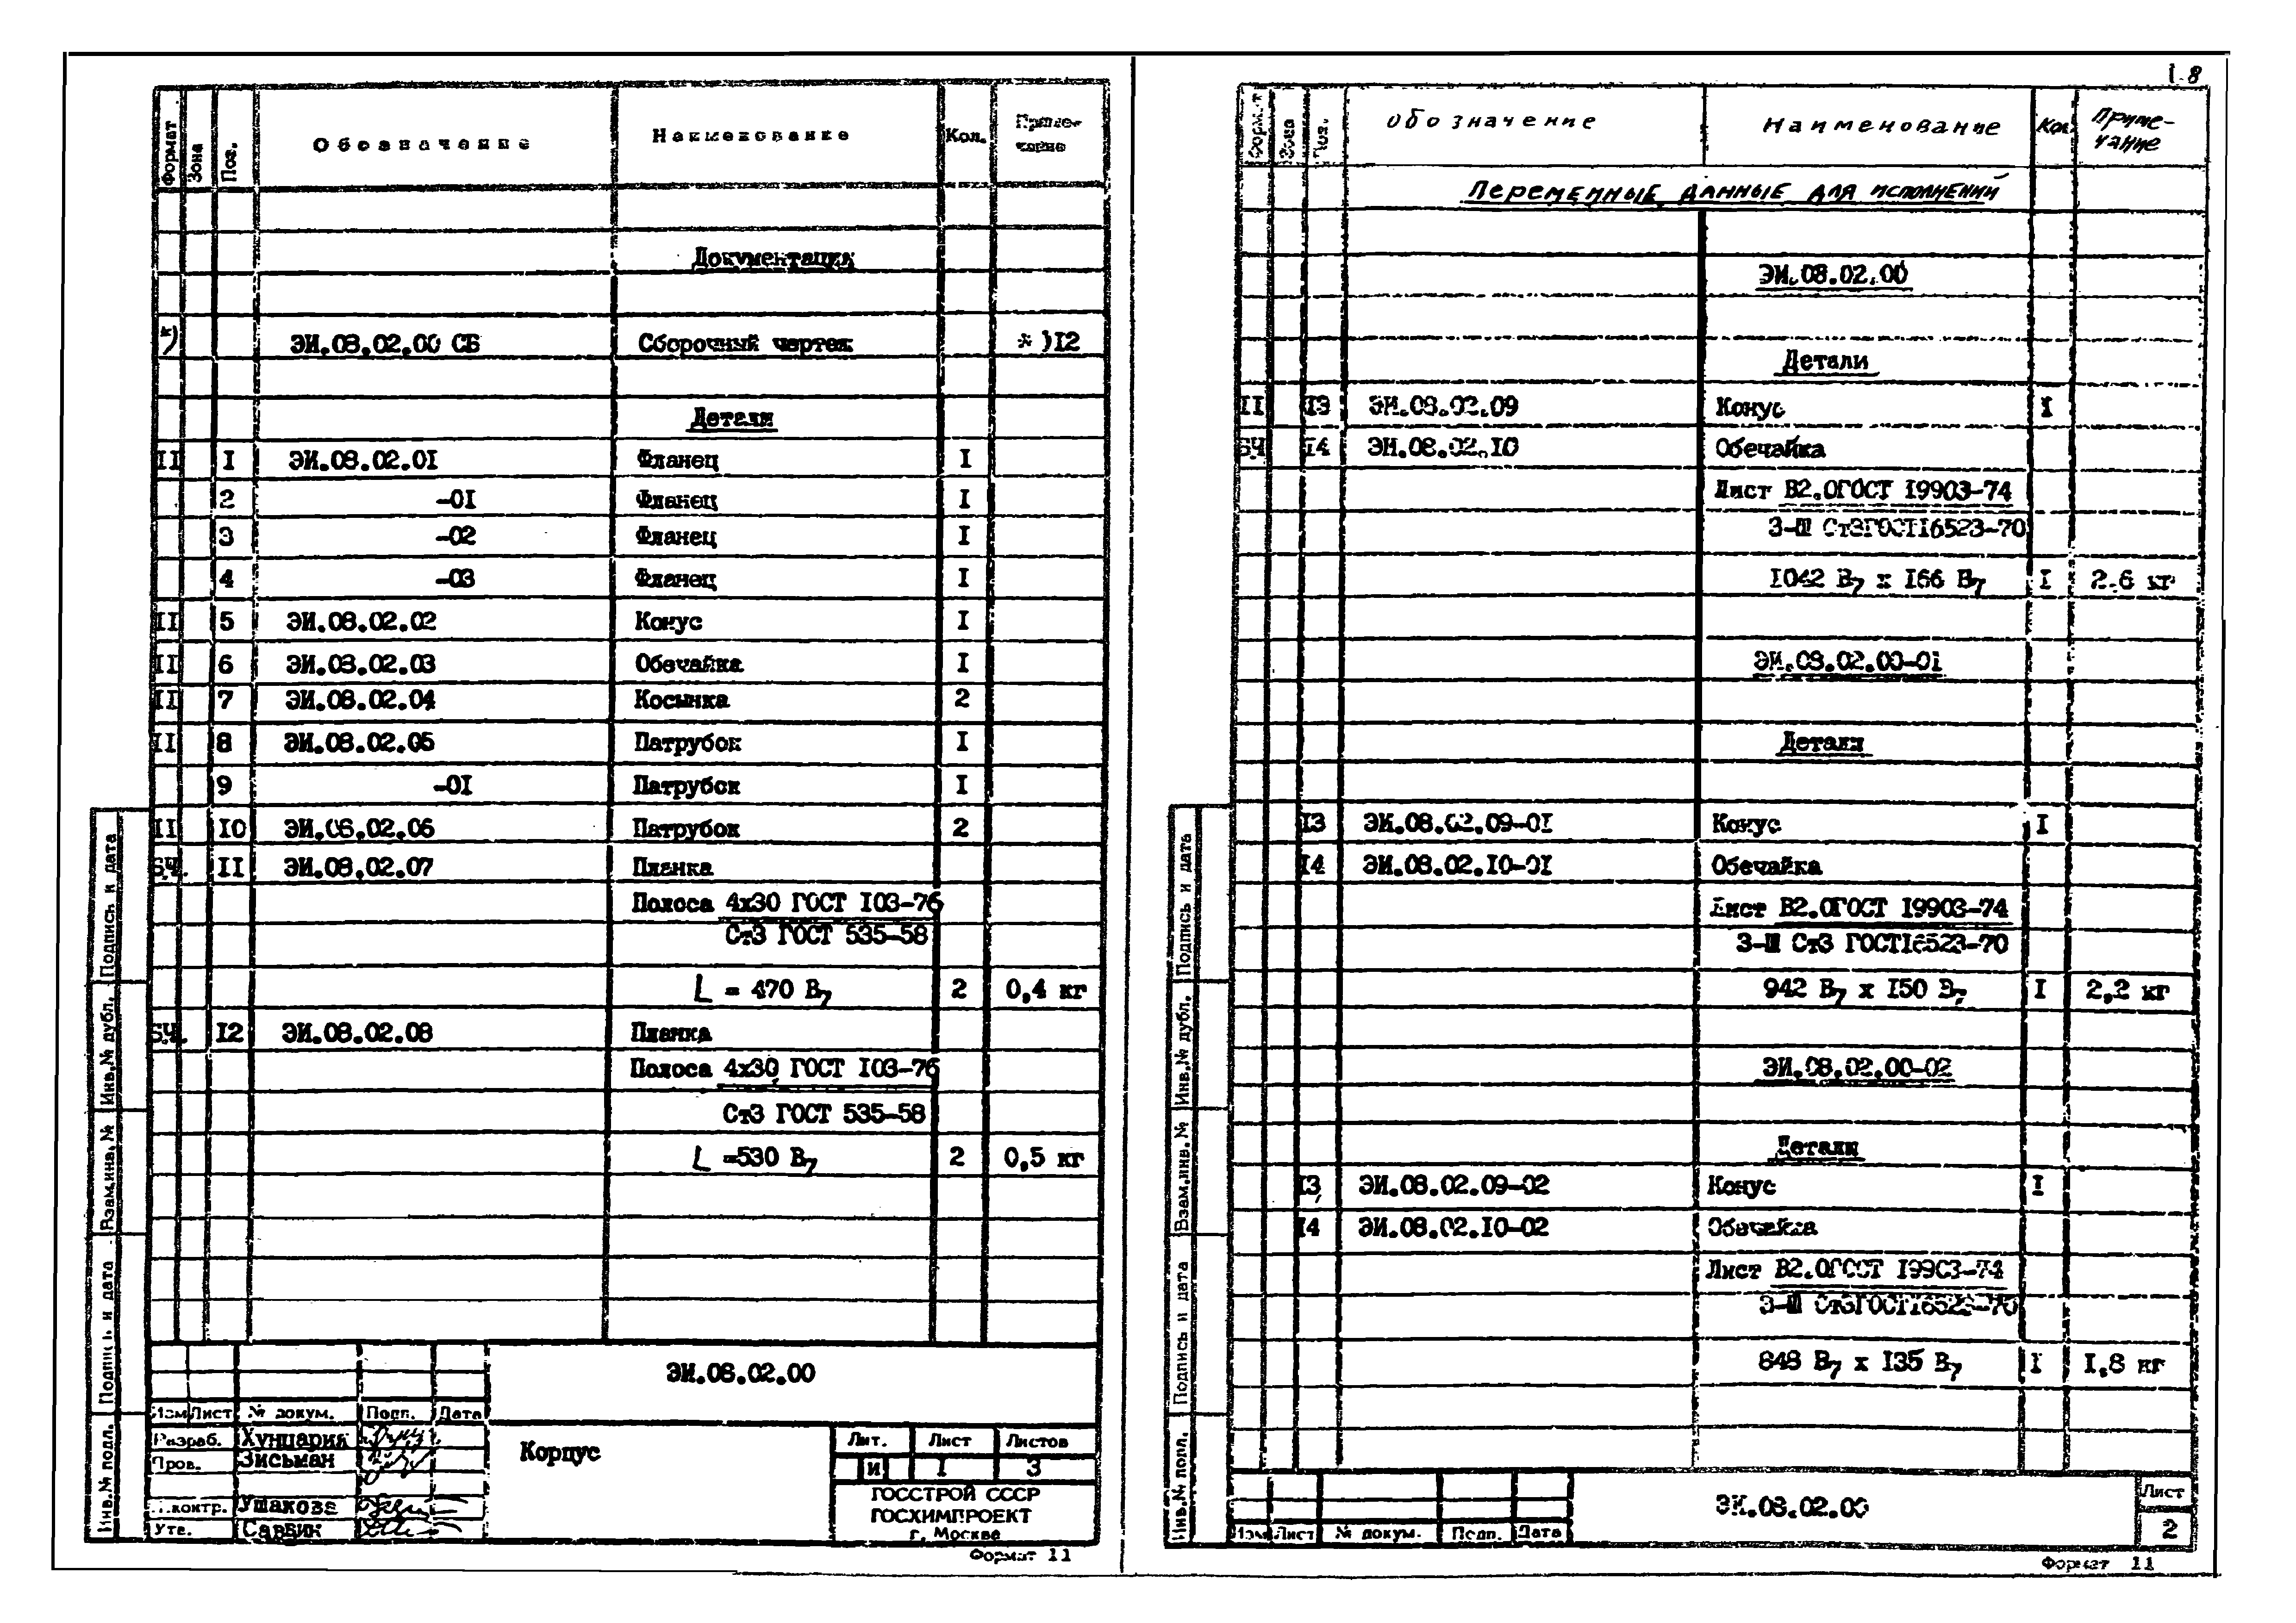 Формат Зона Поз. Обозначение Наименование Кол. Приме-
чание
Документация
*) ЭИ.08.02.00 СБ Сборочный чертеж *)12
Детали
II I ЭИ.08.02.01 Фланец I
2 -01 Фланец I
3 -02 Фланец I
4 -03 Фланец I
II 5 ЭИ.08.02.02 Конус I
II 6 ЭИ.08.02.03 Обечайка I
II 7 ЭИ.08.02.04 Косынка 2
II 8 ЭИ.08.02.05 Патрубок I
9 -01 Патрубок I
II 10 ЭИ.08.02.06 Патрубок 2
БЧ. II ЭИ.08.02.07 Планка
Полоса 4х30 ГОСТ 103-76
Ст3 ГОСТ 535-58
L = 470 В7 2 0,4 кг
БЧ. 12 ЭИ.08.02.08 Планка
Полоса 4х30 ГОСТ 103-76
Ст3 ГОСТ 535-58
L =530 В7 2 0,5 кг
Подпись и дата
Инв.№ дубл.
Взам.инв.№
Подпись и дата
Инв.№ подл.
ЭИ.08.02.00
Изм Лист № докум. Подп. Дата
Разраб. Хунцария
Пров. Зисьман
Н.контр. Ушакова
Утв. Саввин
Корпус
Лит. Лист Листов
И I 3
ГОССТРОЙ СССР
ГОСХИМПРОЕКТ
г. Москва
Формат 11
18
Формат Зона Поз. Обозначение Наименование Кол. Приме-
чание
Переменные данные для исполнений
ЭИ.08.02.00
Детали
II 13 ЭИ.08.02.09 Конус I
БЧ 14 ЭИ.08.02.10 Обечайка
Лист В2.0ГОСТ 19903-74
3-Ш Ст3ГОСТ16523-70
1042 В7 х 166 В7 I 2.6 кг
ЭИ.08.02.00-01
Детали
13 ЭИ.08.02.09-01 Конус I
14 ЭИ.08.02.10-01 Обечайка
Лист В2.0ГОСТ 19903-74
3-Ш Ст3 ГОСТ16523-70
942 В7 х 150 В7 I 2,2 кг
ЭИ.08.02.00-02
Детали
13 ЭИ.08.02.09-02 Конус I
14 ЭИ.08.02.10-02 Обечайка
Лист В2.0ГОСТ 19903-74
3-Ш Ст3ГОСТ16523-70
848 В7 х 135 В7 I 1,8 кг
Подпись и дата
Инв.№ дубл.
Взам.инв.№
Подпись и дата
Инв.№ подл.
Изм Лист № докум. Подп. Дата
ЭИ.08.02.00
Лист
2
Формат 11